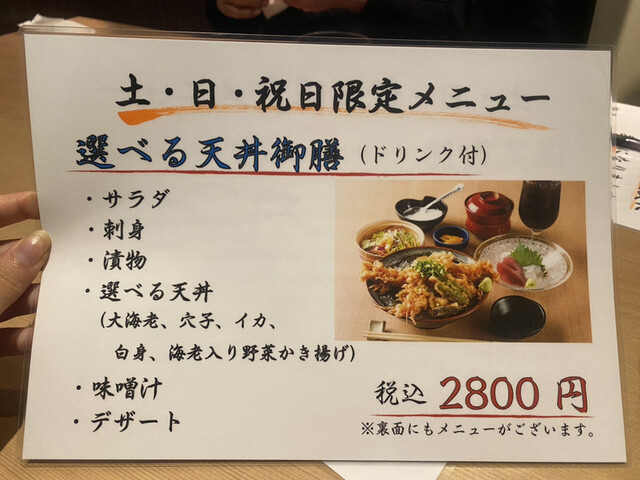 土・日・祝日限定メニュー
選べる天丼御膳 (ドリンク付)
・サラダ
・刺身
・漬物
・選べる天丼
(大海老、穴子、イカ、
白身、海老入り野菜かき揚げ)
・味噌汁
・デザート
税込 2800円
※裏面にもメニューがございます。